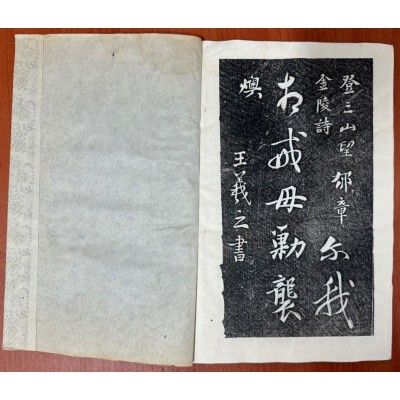 登三山望
金陵詩
章尔我
相戒毋勦襲
煥
王羲之書